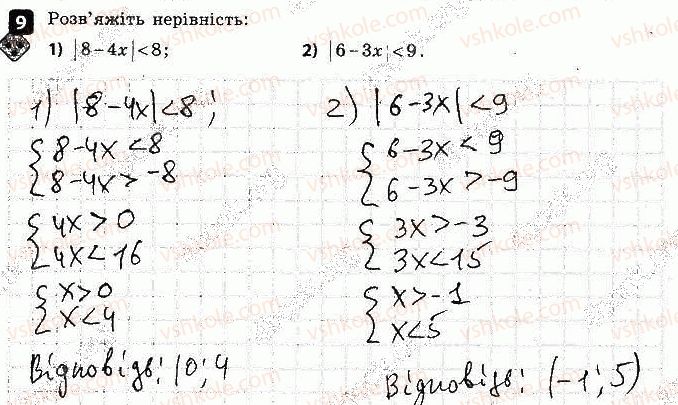 9 Розв'яжіть нерівність:
1) |8-4x|<8; 2) |6-3x|<9.
1) |8-4x|<8;
{ 8-4x<8
{ 8-4x>-8
{ 4x>0
{ 4x<16
{ x>0
{ x<4
Відповідь: (0;4
2) |6-3x|<9
{ 6-3x<9
{ 6-3x>-9
{ 3x>-3
{ 3x<15
{ x>-1
{ x<5
Відповідь: (-1;5)
vshkole.com